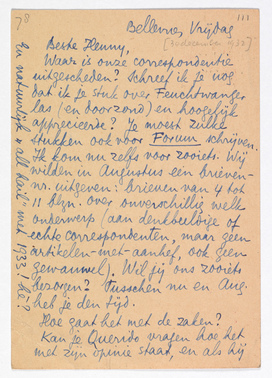 78
111
Bellevue, Vrijdag
[30 december 1932]
Beste Henny,
Waar is onze correspondentie
uitgescheden? Schreef ik je nog
dat ik je stuk over Feuchtwanger
las (en doorzond) en hoogelijk
apprecieerde? Je moest zulke
stukken ook voor Forum schrijven.
Ik kom nu zelfs voor zooiets. Wij
wilden in Augustus een brieven-
nr. uitgeven: brieven van 4 tot
11 blzn. over onverschillig welk
onderwerp (aan denkbeeldige of
echte correspondenten, maar geen
artikelen-met-aanhef, ook geen
gewauwel). Wil jij ons zooiets
bezorgen? Tusschen nu en Aug.
heb je den tijd.
Hoe gaat het met de zaken?
Kan je Querido vragen hoe het
met zijn opinie staat, en als hij
En natuurlijk "all hail" met 1933! hè?